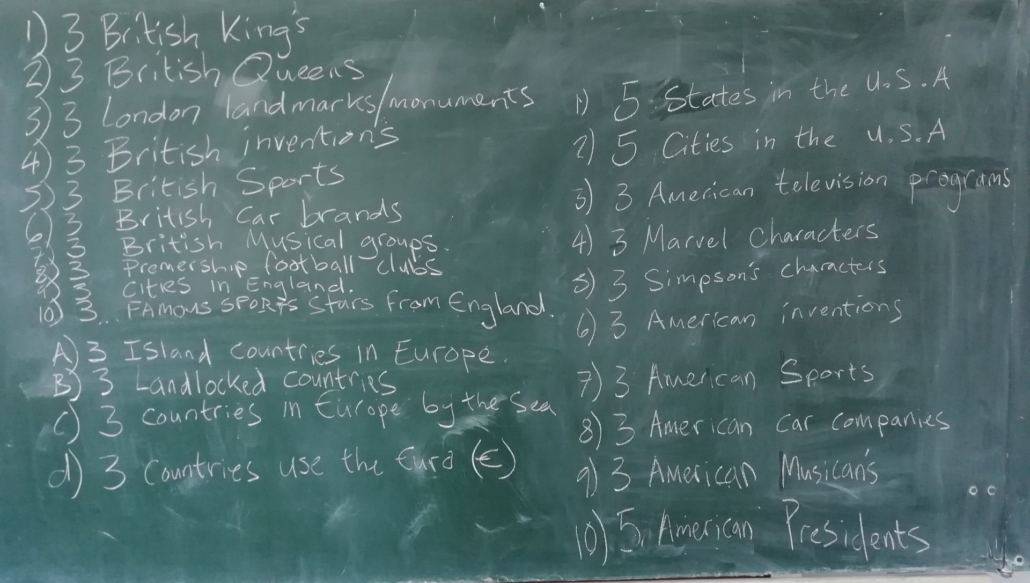 1) 3 British King's
2) 3 British Queens
3) 3 London landmarks/monuments
4) 3 British invention's
5) 3 British Sports
6) 3 British Car brands
7) 3 British Musical groups.
8) 3 Premership football clubs
9) 3 Cities in England.
10) 3... Famous sports stars from England.
A) 3 Island countries in Europe.
B) 3 Landlocked countries
c) 3 countries in Europe by the Sea
d) 3 Countries use the Euro (€)
1) 5 States in the U.S.A
2) 5 Cities in the U.S.A
3) 3 American television programs
4) 3 Marvel Characters
5) 3 Simpson's characters
6) 3 American inventions
7) 3 American Sports
8) 3 American car companies
9) 3 American Musican's
10) 5 American Presidents